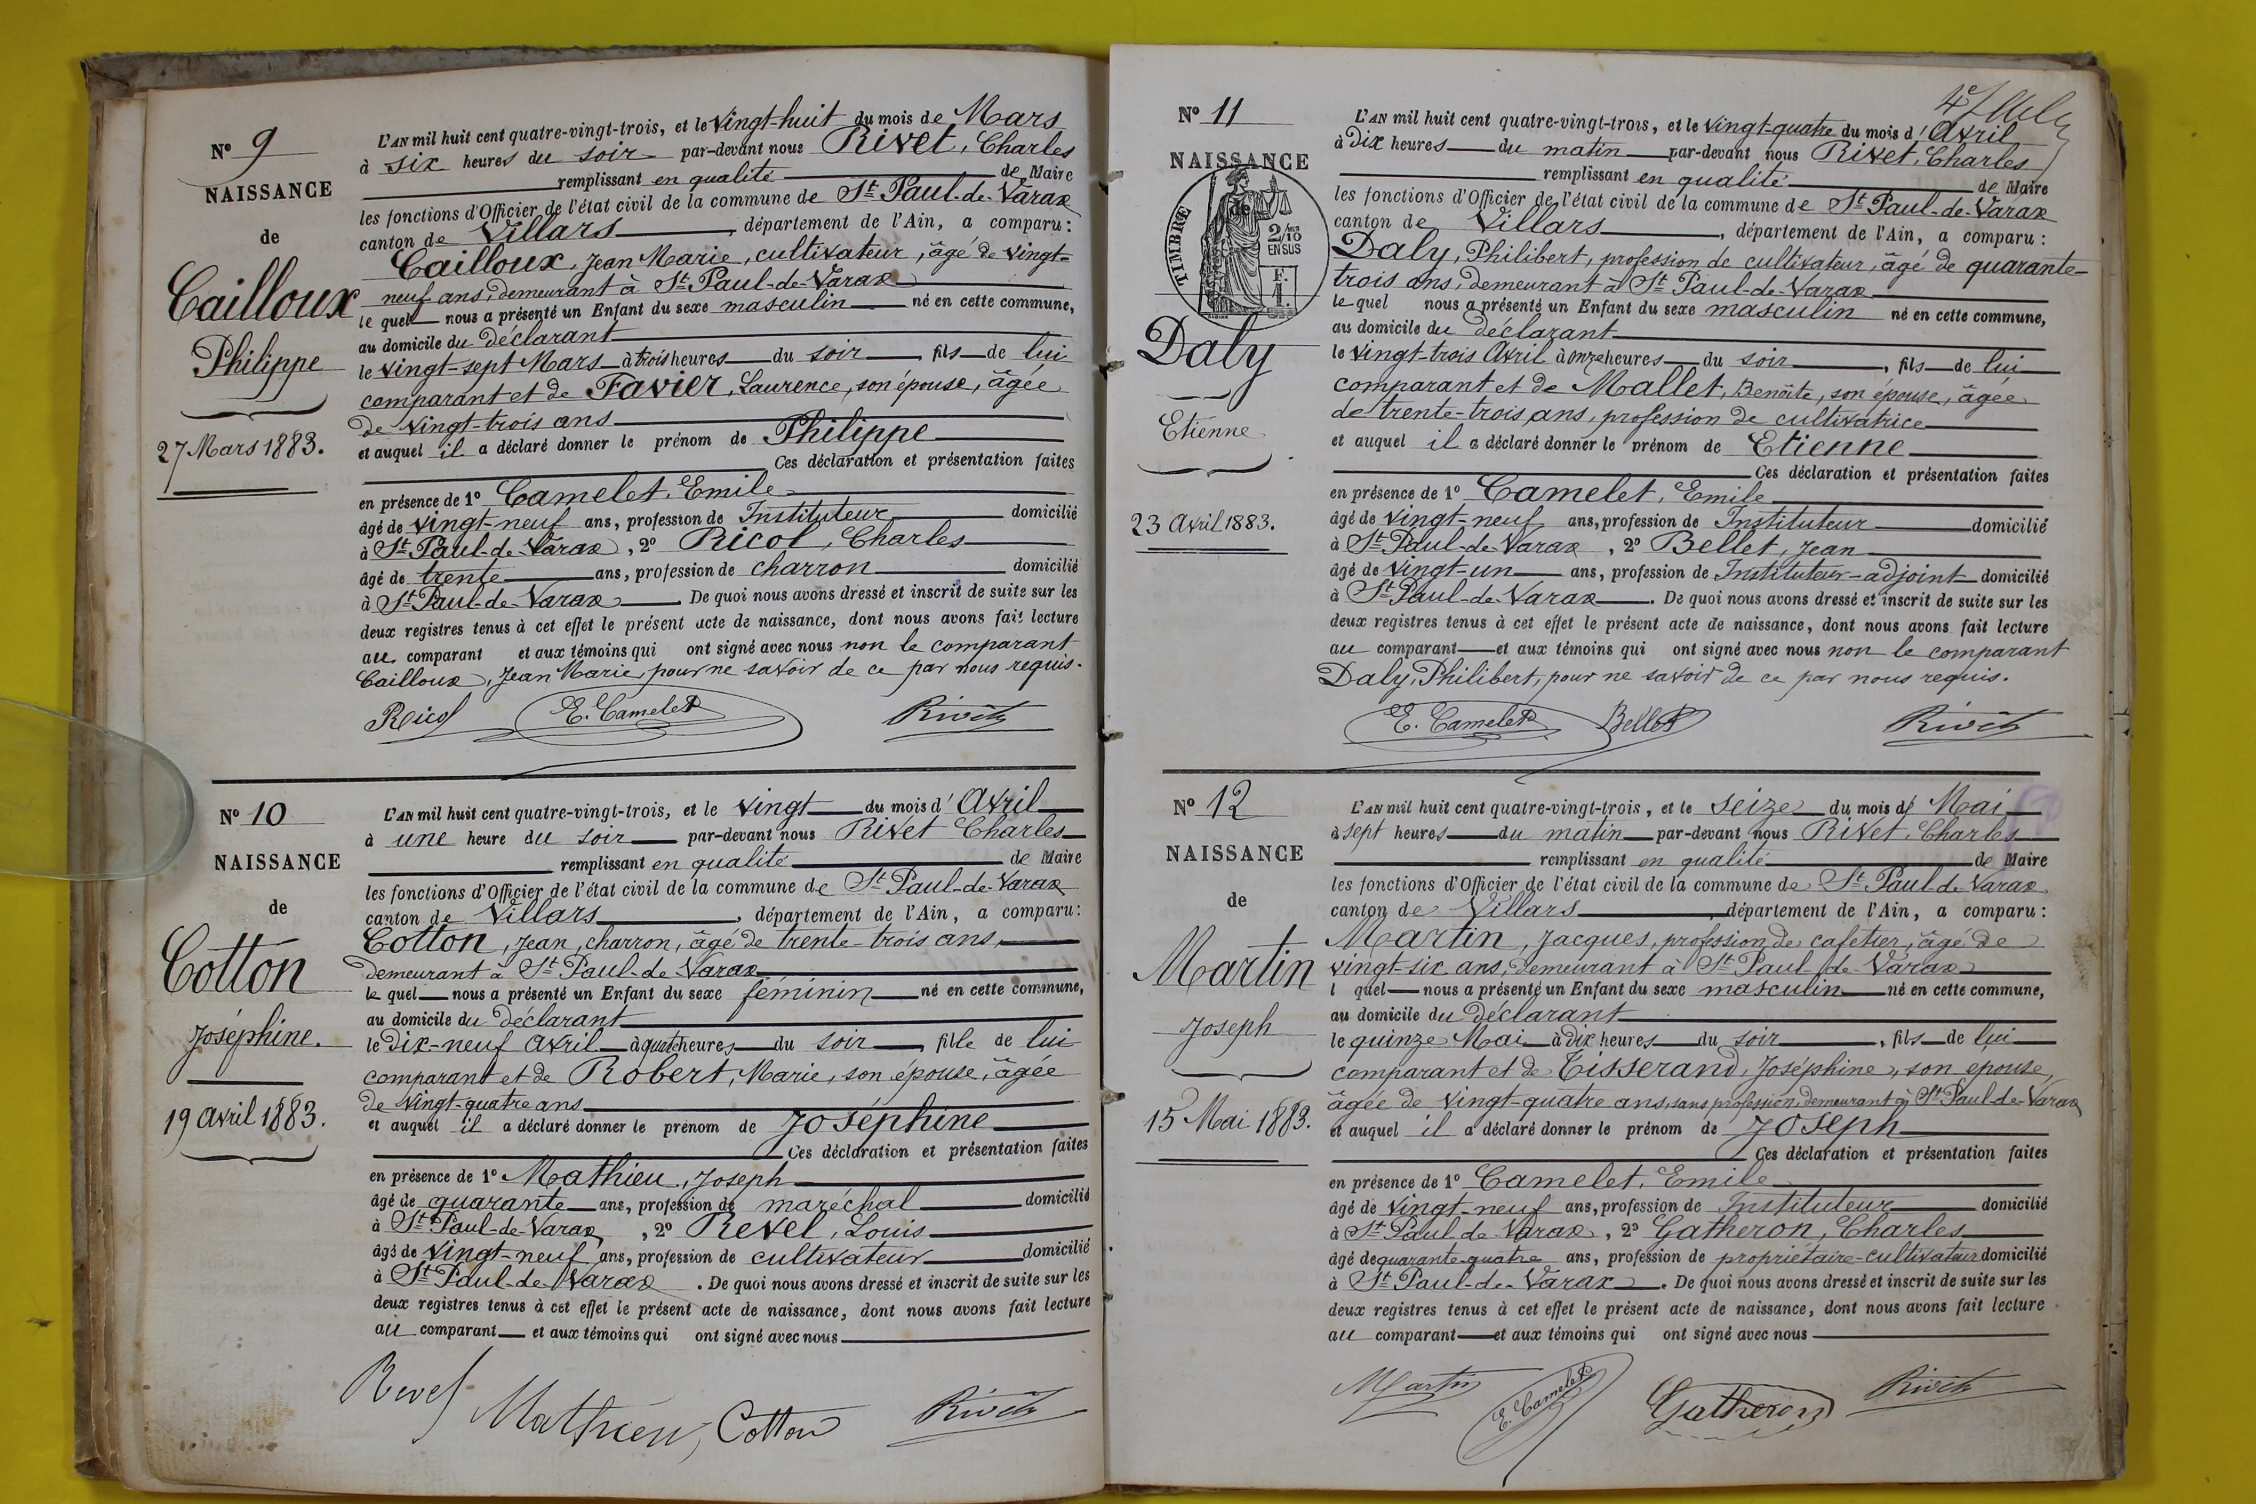 Nº 9
NAISSANCE
de
Cailloux
Philippe
27 Mars 1883.
L'AN mil huit cent quatre-vingt-trois, et le Vingt-huit du mois de Mars
à six heures du soir par-devant nous Rivet, Charles
remplissant en qualité de Maire
les fonctions d'Officier de l'état civil de la commune de St Paul-de-Varax
canton de Villars, département de l'Ain, a comparu:
Cailloux, Jean Marie, cultivateur, âgé de vingt-
neuf ans, demeurant à St Paul-de-Varax
le quel nous a présenté un Enfant du sexe masculin né en cette commune,
au domicile du déclarant
le vingt-sept Mars à trois heures du soir, fils de lui
comparant et de Favier, Laurence, son épouse, âgée
de vingt-trois ans
et auquel il a déclaré donner le prénom de Philippe
Ces déclaration et présentation faites
en présence de 1º Camelet, Emile
âgé de vingt-neuf ans, profession de Instituteur domicilié
à St Paul-de-Varax, 2º Ricol, Charles
âgé de trente ans, profession de charron domicilié
à St Paul-de-Varax. De quoi nous avons dressé et inscrit de suite sur les
deux registres tenus à cet effet le présent acte de naissance, dont nous avons fait lecture
au comparant et aux témoins qui ont signé avec nous non le comparant
Cailloux, Jean Marie, pour ne savoir de ce par nous requis.
Ricol E. Camelet Rivet
Nº 10
NAISSANCE
de
Cotton
Joséphine.
19 Avril 1883.
L'AN mil huit cent quatre-vingt-trois, et le vingt du mois d'Avril
à une heure du soir par-devant nous Rivet Charles
remplissant en qualité de Maire
les fonctions d'Officier de l'état civil de la commune de St Paul-de-Varax
canton de Villars, département de l'Ain, a comparu:
Cotton, Jean, charron, âgé de trente-trois ans,
demeurant à St Paul-de-Varax
le quel nous a présenté un Enfant du sexe féminin né en cette commune,
au domicile du déclarant
le dix-neuf Avril à quatre heures du soir, fille de lui
comparant et de Robert, Marie, son épouse, âgée
de vingt-quatre ans
et auquel il a déclaré donner le prénom de Joséphine
Ces déclaration et présentation faites
en présence de 1º Mathieu, Joseph
âgé de quarante ans, profession de maréchal domicilié
à St Paul-de-Varax, 2º Revel, Louis
âgé de vingt-neuf ans, profession de cultivateur domicilié
à St Paul-de-Varax. De quoi nous avons dressé et inscrit de suite sur les
deux registres tenus à cet effet le présent acte de naissance, dont nous avons fait lecture
au comparant et aux témoins qui ont signé avec nous
Revel Mathieu, Cotton Rivet
Nº 11
NAISSANCE
de
TIMBRE
2/10
EN SUS
F.
1.
Daly
Etienne
23 Avril 1883.
L'AN mil huit cent quatre-vingt-trois, et le vingt-quatre du mois d'Avril
à Dix heures du matin par-devant nous Rivet, Charles
remplissant en qualité de Maire
les fonctions d'Officier de l'état civil de la commune de St Paul-de-Varax
canton de Villars, département de l'Ain, a comparu:
Daly, Philibert, profession de cultivateur, âgé de quarante-
trois ans, demeurant à St Paul-de-Varax
le quel nous a présenté un Enfant du sexe masculin né en cette commune,
au domicile du déclarant
le vingt-trois Avril à onze heures du soir, fils de lui
comparant et de Mallet, Benoîte, son épouse, âgée
de trente-trois ans, profession de cultivatrice
et auquel il a déclaré donner le prénom de Etienne
Ces déclaration et présentation faites
en présence de 1º Camelet, Emile
âgé de vingt-neuf ans, profession de Instituteur domicilié
à St Paul-de-Varax, 2º Bellet, Jean
âgé de vingt-un ans, profession de Instituteur-adjoint domicilié
à St Paul-de-Varax. De quoi nous avons dressé et inscrit de suite sur les
deux registres tenus à cet effet le présent acte de naissance, dont nous avons fait lecture
au comparant et aux témoins qui ont signé avec nous non le comparant
Daly, Philibert, pour ne savoir de ce par nous requis.
E. Camelet Bellet Rivet
Nº 12
NAISSANCE
de
Martin
Joseph
15 Mai 1883.
L'AN mil huit cent quatre-vingt-trois, et le seize du mois de Mai
à sept heures du matin par-devant nous Rivet, Charles
remplissant en qualité de Maire
les fonctions d'Officier de l'état civil de la commune de St Paul de Varax
canton de Villars, département de l'Ain, a comparu:
Martin, Jacques, profession de cafetier, âgé de
vingt-six ans, demeurant à St Paul-de-Varax
l quel nous a présenté un Enfant du sexe masculin né en cette commune,
au domicile du déclarant
le quinze Mai à dix heures du soir, fils de lui
comparant et de Tisserand, Joséphine, son épouse,
âgée de vingt-quatre ans, sans profession, demeurant à St Paul-de-Varax
et auquel il a déclaré donner le prénom de Joseph
Ces déclaration et présentation faites
en présence de 1º Camelet, Emile
âgé de vingt-neuf ans, profession de Instituteur domicilié
à St Paul de Varax, 2º Gatheron, Charles
âgé de quarante-quatre ans, profession de propriétaire-cultivateur domicilié
à St Paul-de-Varax. De quoi nous avons dressé et inscrit de suite sur les
deux registres tenus à cet effet le présent acte de naissance, dont nous avons fait lecture
au comparant et aux témoins qui ont signé avec nous
Martin E. Camelet Gatheron Rivet